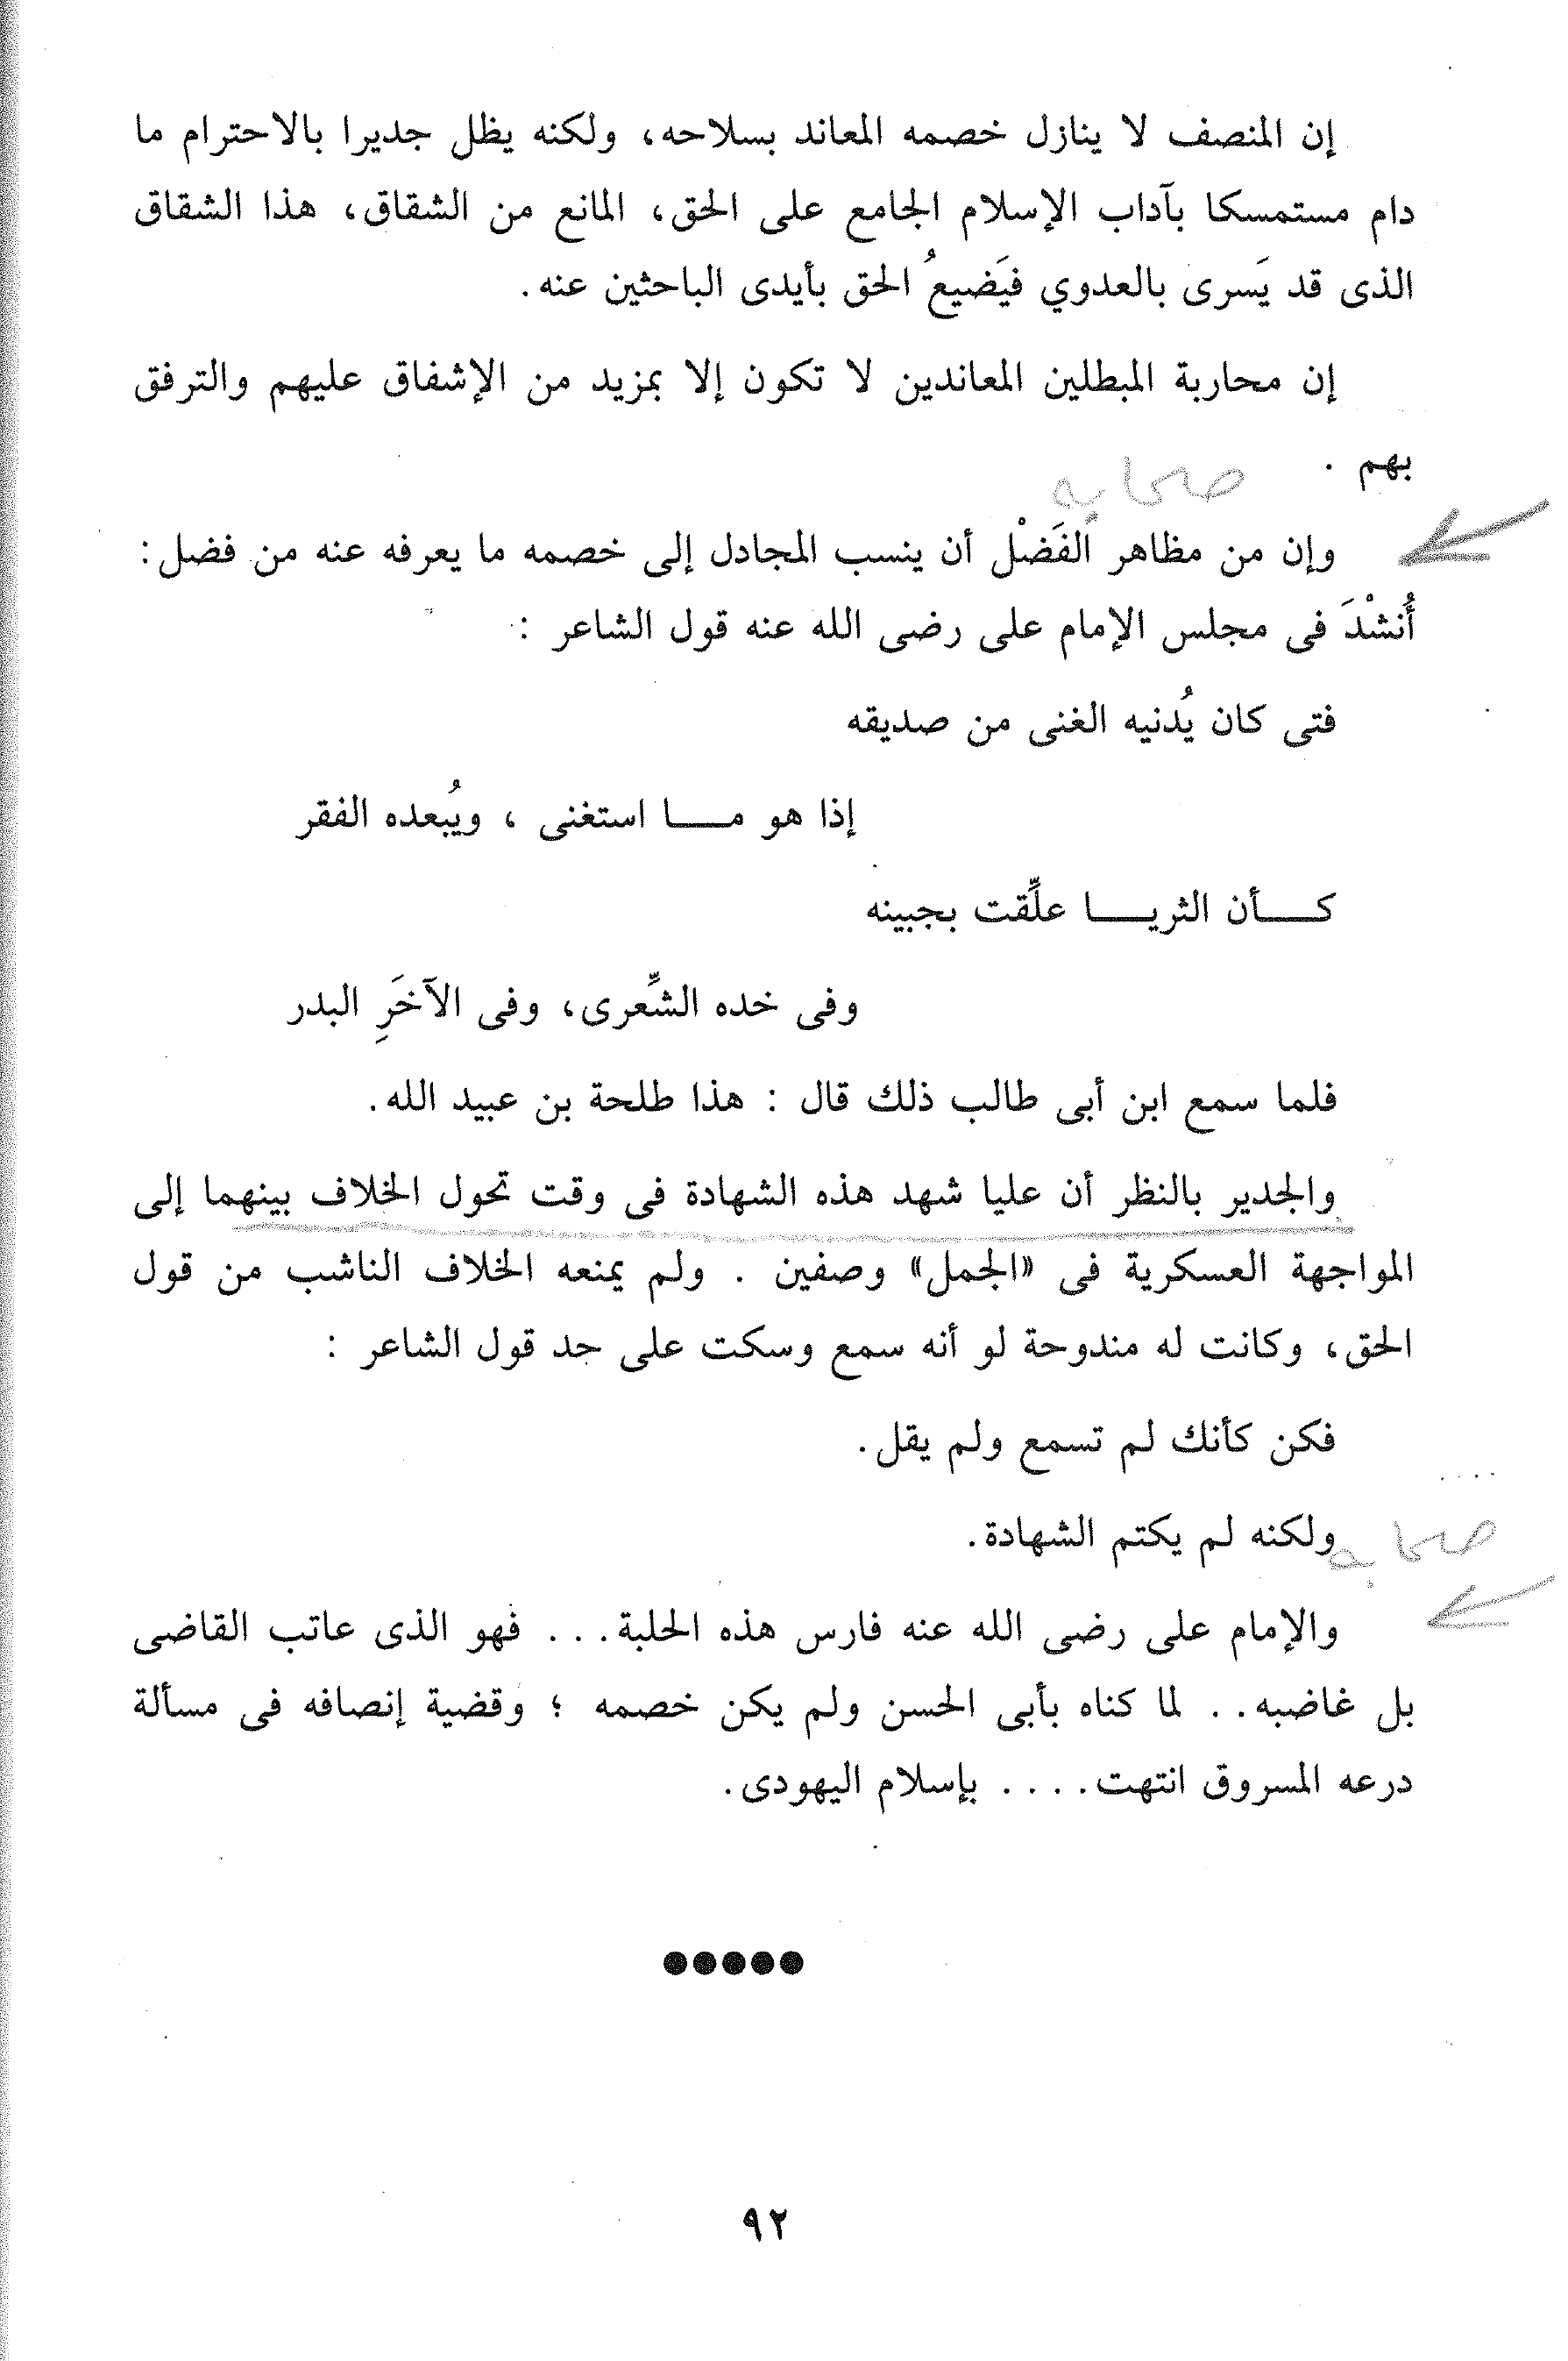 إن المنصف لا ينازل خصمه المعاند بسلاحه، ولكنه يظل جديرا بالاحترام ما
دام مستمسكا بآداب الإسلام الجامع على الحق، المانع من الشقاق، هذا الشقاق
الذى قد يَسرى بالعدوي فيَضيعُ الحق بأيدى الباحثين عنه.
إن محاربة المبطلين المعاندين لا تكون إلا بمزيد من الإشفاق عليهم والترفق
بهم .
صحابه
وإن من مظاهر الفَضْل أن ينسب المجادل إلى خصمه ما يعرفه عنه من فضل:
أُنشْدَ فى مجلس الإمام على رضى الله عنه قول الشاعر :
فتى كان يُدنيه الغنى من صديقه
إذا هو مـــا استغنى ، ويُبعده الفقر
كـــأن الثريـــا علِّقت بجبينه
وفى خده الشِّعرى، وفى الآخَرِ البدر
فلما سمع ابن أبى طالب ذلك قال : هذا طلحة بن عبيد الله.
والجدير بالنظر أن عليا شهد هذه الشهادة فى وقت تحول الخلاف بينهما إلى
المواجهة العسكرية فى «الجمل» وصفين . ولم يمنعه الخلاف الناشب من قول
الحق، وكانت له مندوحة لو أنه سمع وسكت على حد قول الشاعر :
فكن كأنك لم تسمع ولم يقل.
ولكنه لم يكتم الشهادة.
صحابه
والإمام على رضى الله عنه فارس هذه الحلبة... فهو الذى عاتب القاضى
بل غاضبه.. لما كناه بأبى الحسن ولم يكن خصمه ؛ وقضية إنصافه فى مسألة
درعه المسروق انتهت.... بإسلام اليهودى.
●●●●●
٩٢